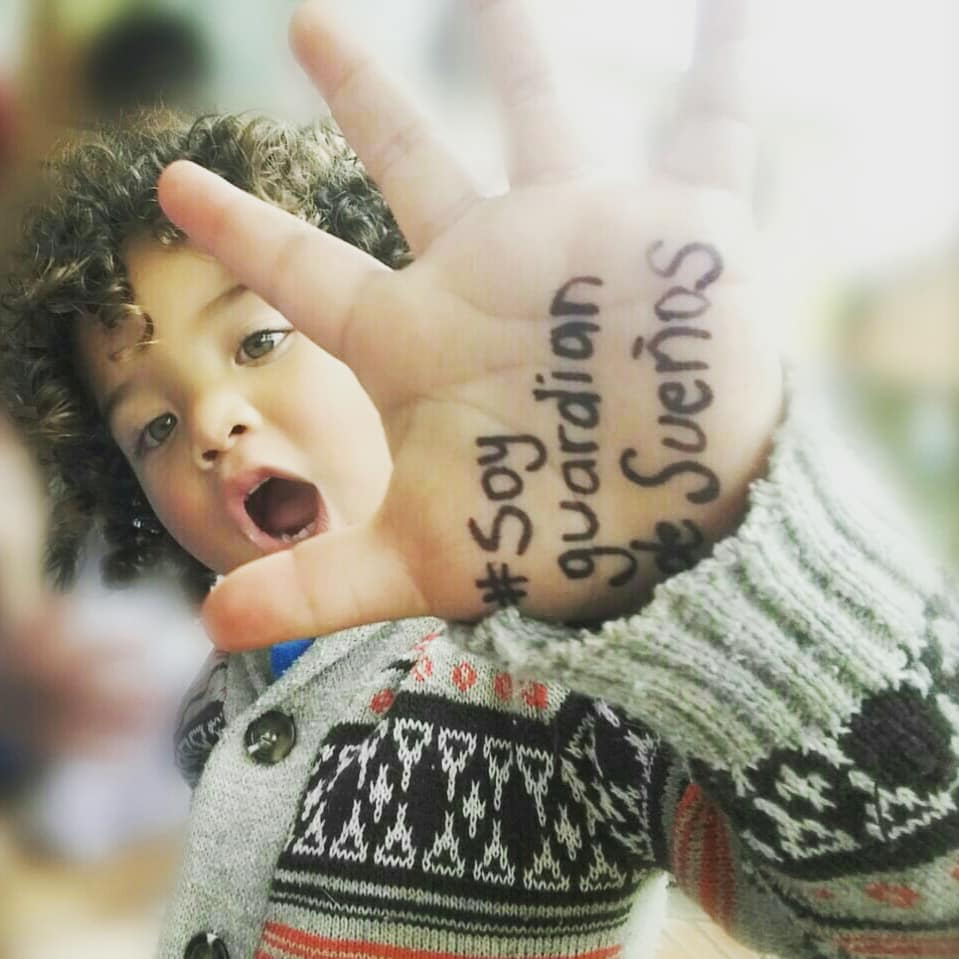 #Soy
guardian
de Sueños